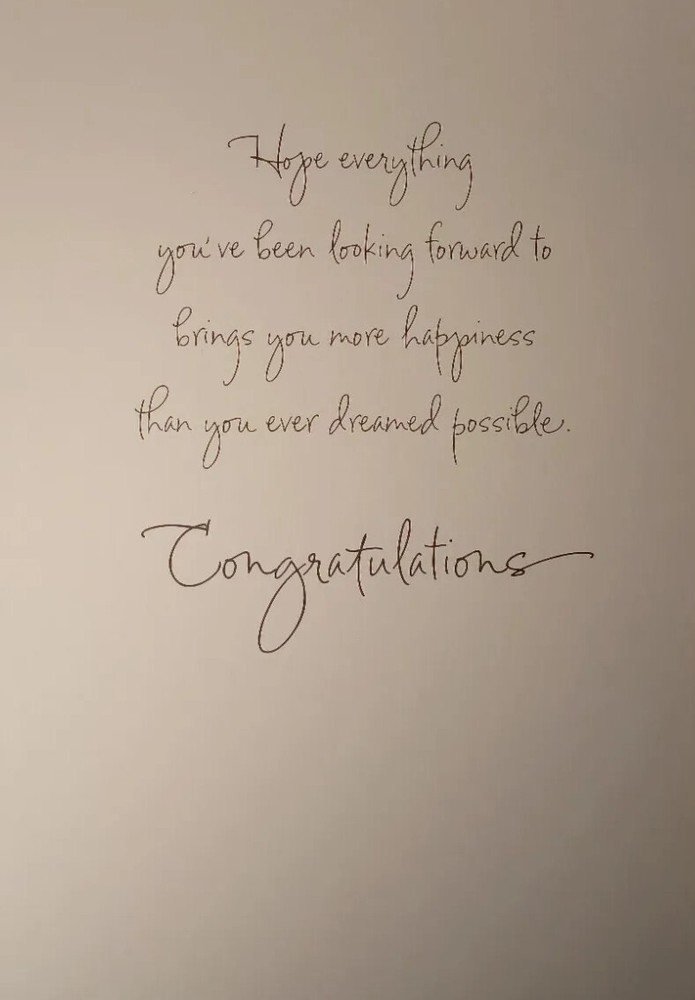 Hope everything
you've been looking forward to
brings you more happiness
than you ever dreamed possible.
Congratulations